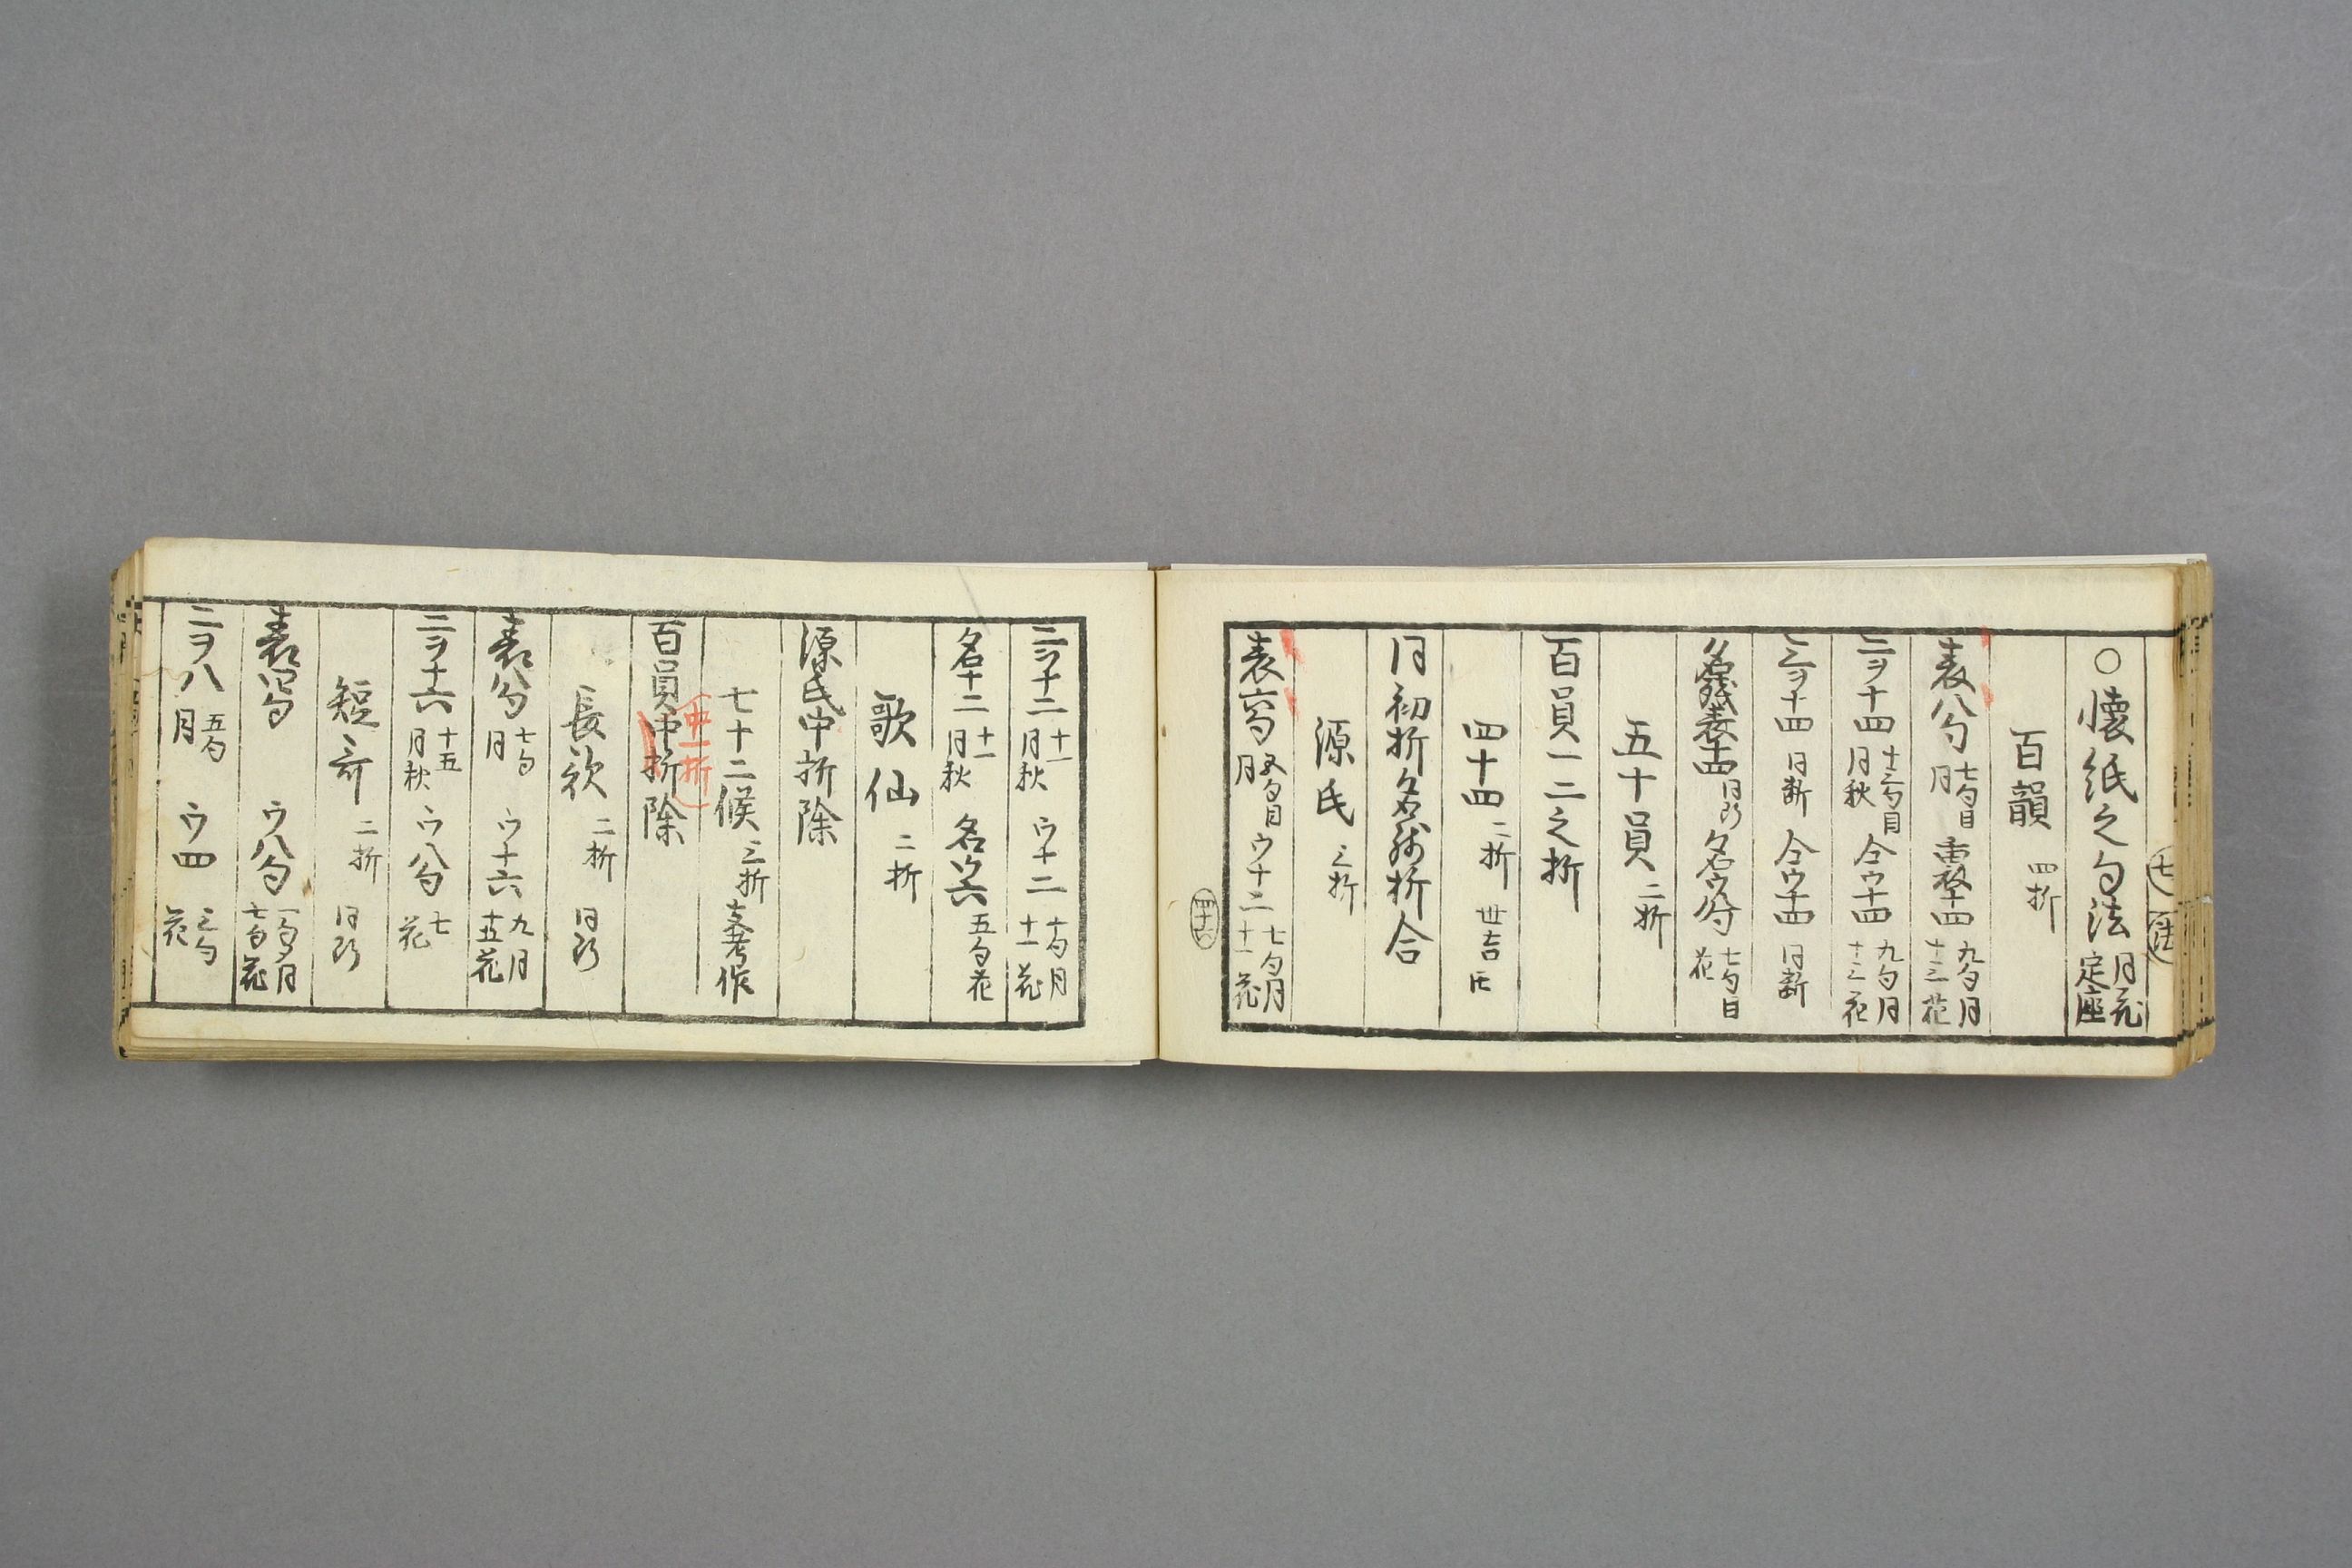 ○懐紙之句法 月花定座
百韻 四折
表八句 七句目月 裏十四 九句月 十三花
二ヲ十四 十三句目月秋 仝ウ十四 九句月 十三花
三ヲ十四 同断 仝ウ十四 同断
名残表十四 同断 名ウ八句 七句目花
五十員 二折
百員一二之折
四十四 二折 世吉圧
同初折名残折合
源氏 三折
表六句 五句目月 ウ十二 七句月 十一花
四十六
二ヲ十二 十一月秋 ウ十二 十句月 十一花
名十二 十一月秋 名ウ六 五句花
歌仙 二折
源氏中折除
七十二候 三折 支考作
(中一折)
百員中折除
長歌 二折 同断
表八句 七句月 ウ十六 九月 十五花
二ヲ十六 十五月秋 ウ八句 七花
短哥 二折 同断
表四句 ウ八句 一句月 七句花
二ヲ八 五句月 ウ四 三句花